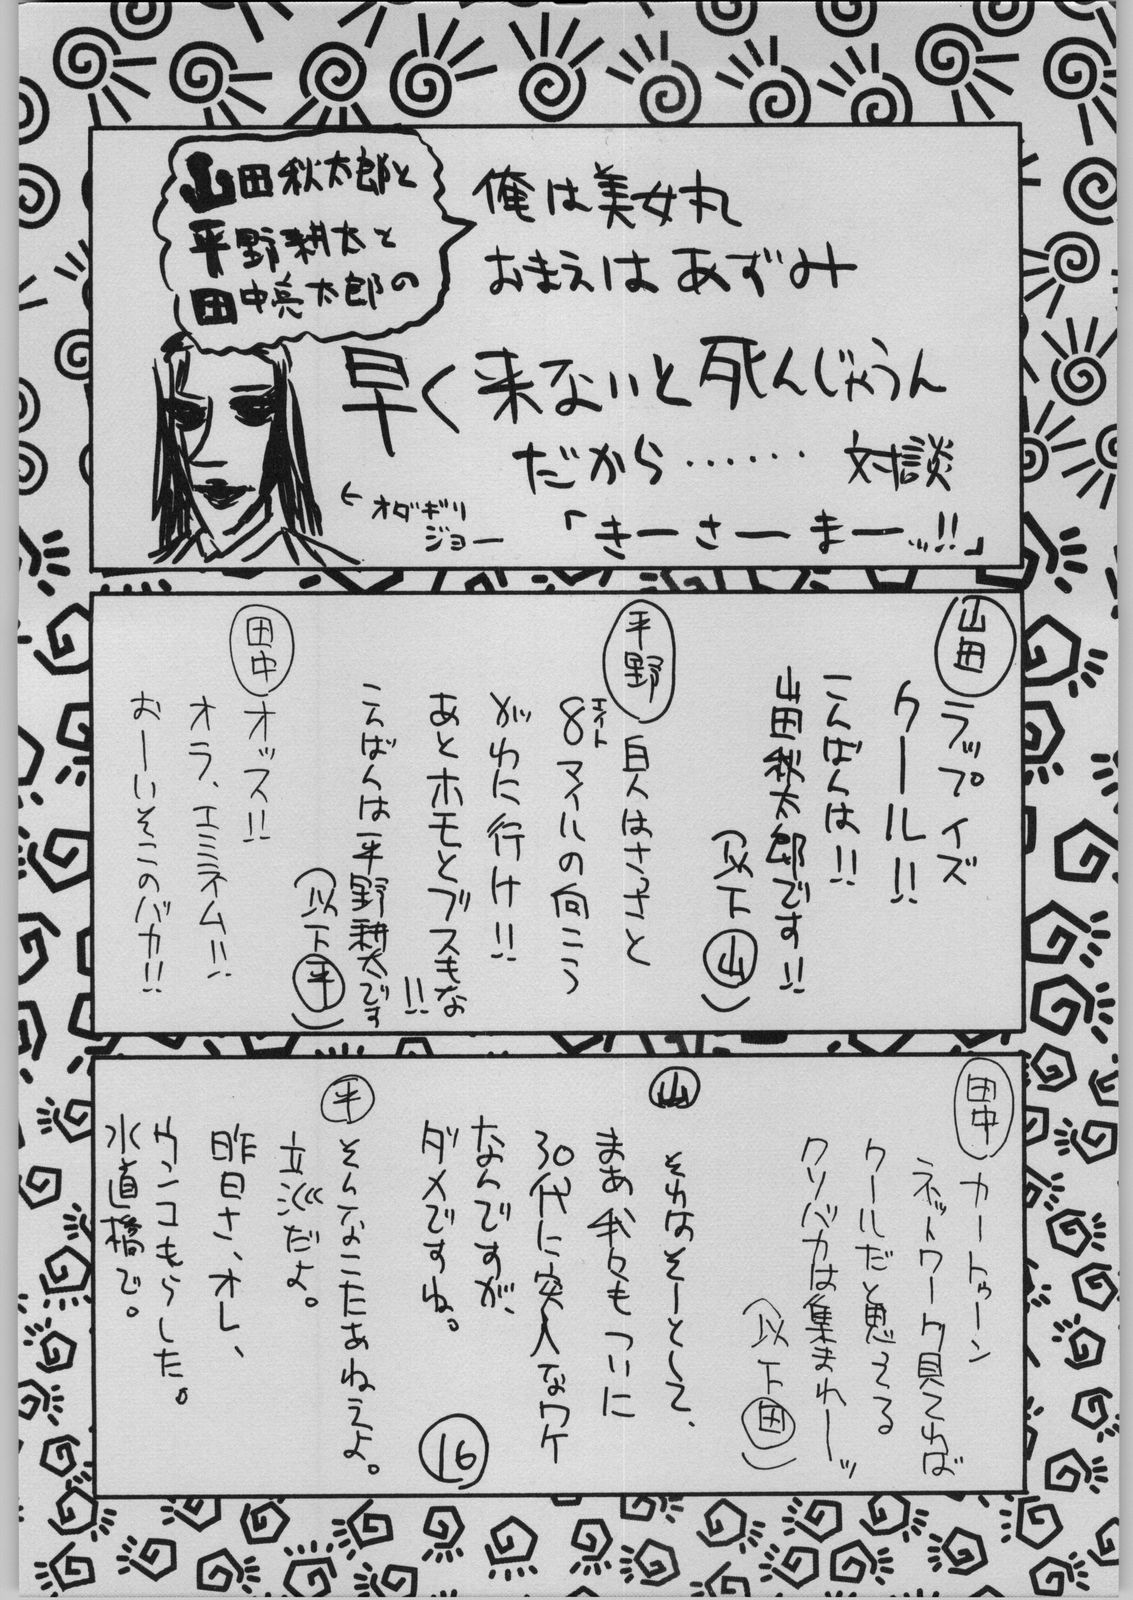 山田秋太郎と
平野耕太と
田中亮太郎の
俺は美女丸
おまえはあずみ
早く来ないと死んじゃうん
だから…… 対談
「きーさーまーッ!!」
オダギリ
ジョー
山田
ラップイズ
クール!!
こんばんは!!
山田秋太郎です!!
(以下山)
平野
白人はさっさと
8マイルの向こう
エイト
がわに行け!!
あとホモとブスもな
!!
こんばんは平野耕太です
(以下平)
田中
オッス!!
オラ、エミネム!!
おーいそこのバカ!!
田中
カートゥーン
ネットワーク見てれば
クールだと思ってる
クソバカは集まれーッ
(以下田)
山
それはそーとして、
まあ我々もついに
30代に突入なワケ
なんですが、
ダメですね。
平
そんなこたあねぇよ。
立派だよ。
昨日さ、オレ、
ウンコもらした。
水道橋で。
16